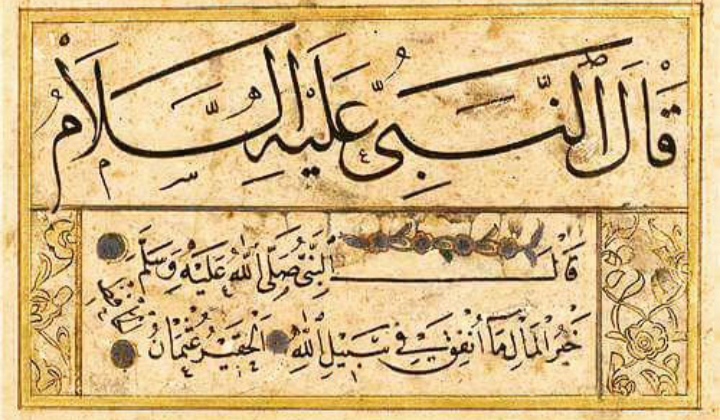 قَالَ النَّبِيُّ عَلَيْهِ السَّلَامُ
قَالَ النَّبِيُّ صَلَّى اللهُ عَلَيْهِ وَسَلَّمَ
خَيْرُ الْمَالِ مَا أُنْفِقَ فِي سَبِيلِ اللهِ الْحَقِيرُ عُثْمَانُ